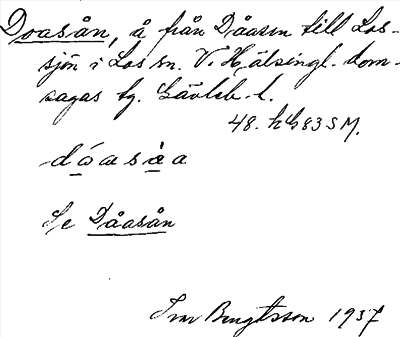 Doasån, å från Dåasen till Los-
sjön i Los sn. V. Hälsingl. dom-
sagas tg. Gävleb. l.
48. h G 83 S M.
dóasàa
Se Dåasån
Bengtsson 1937